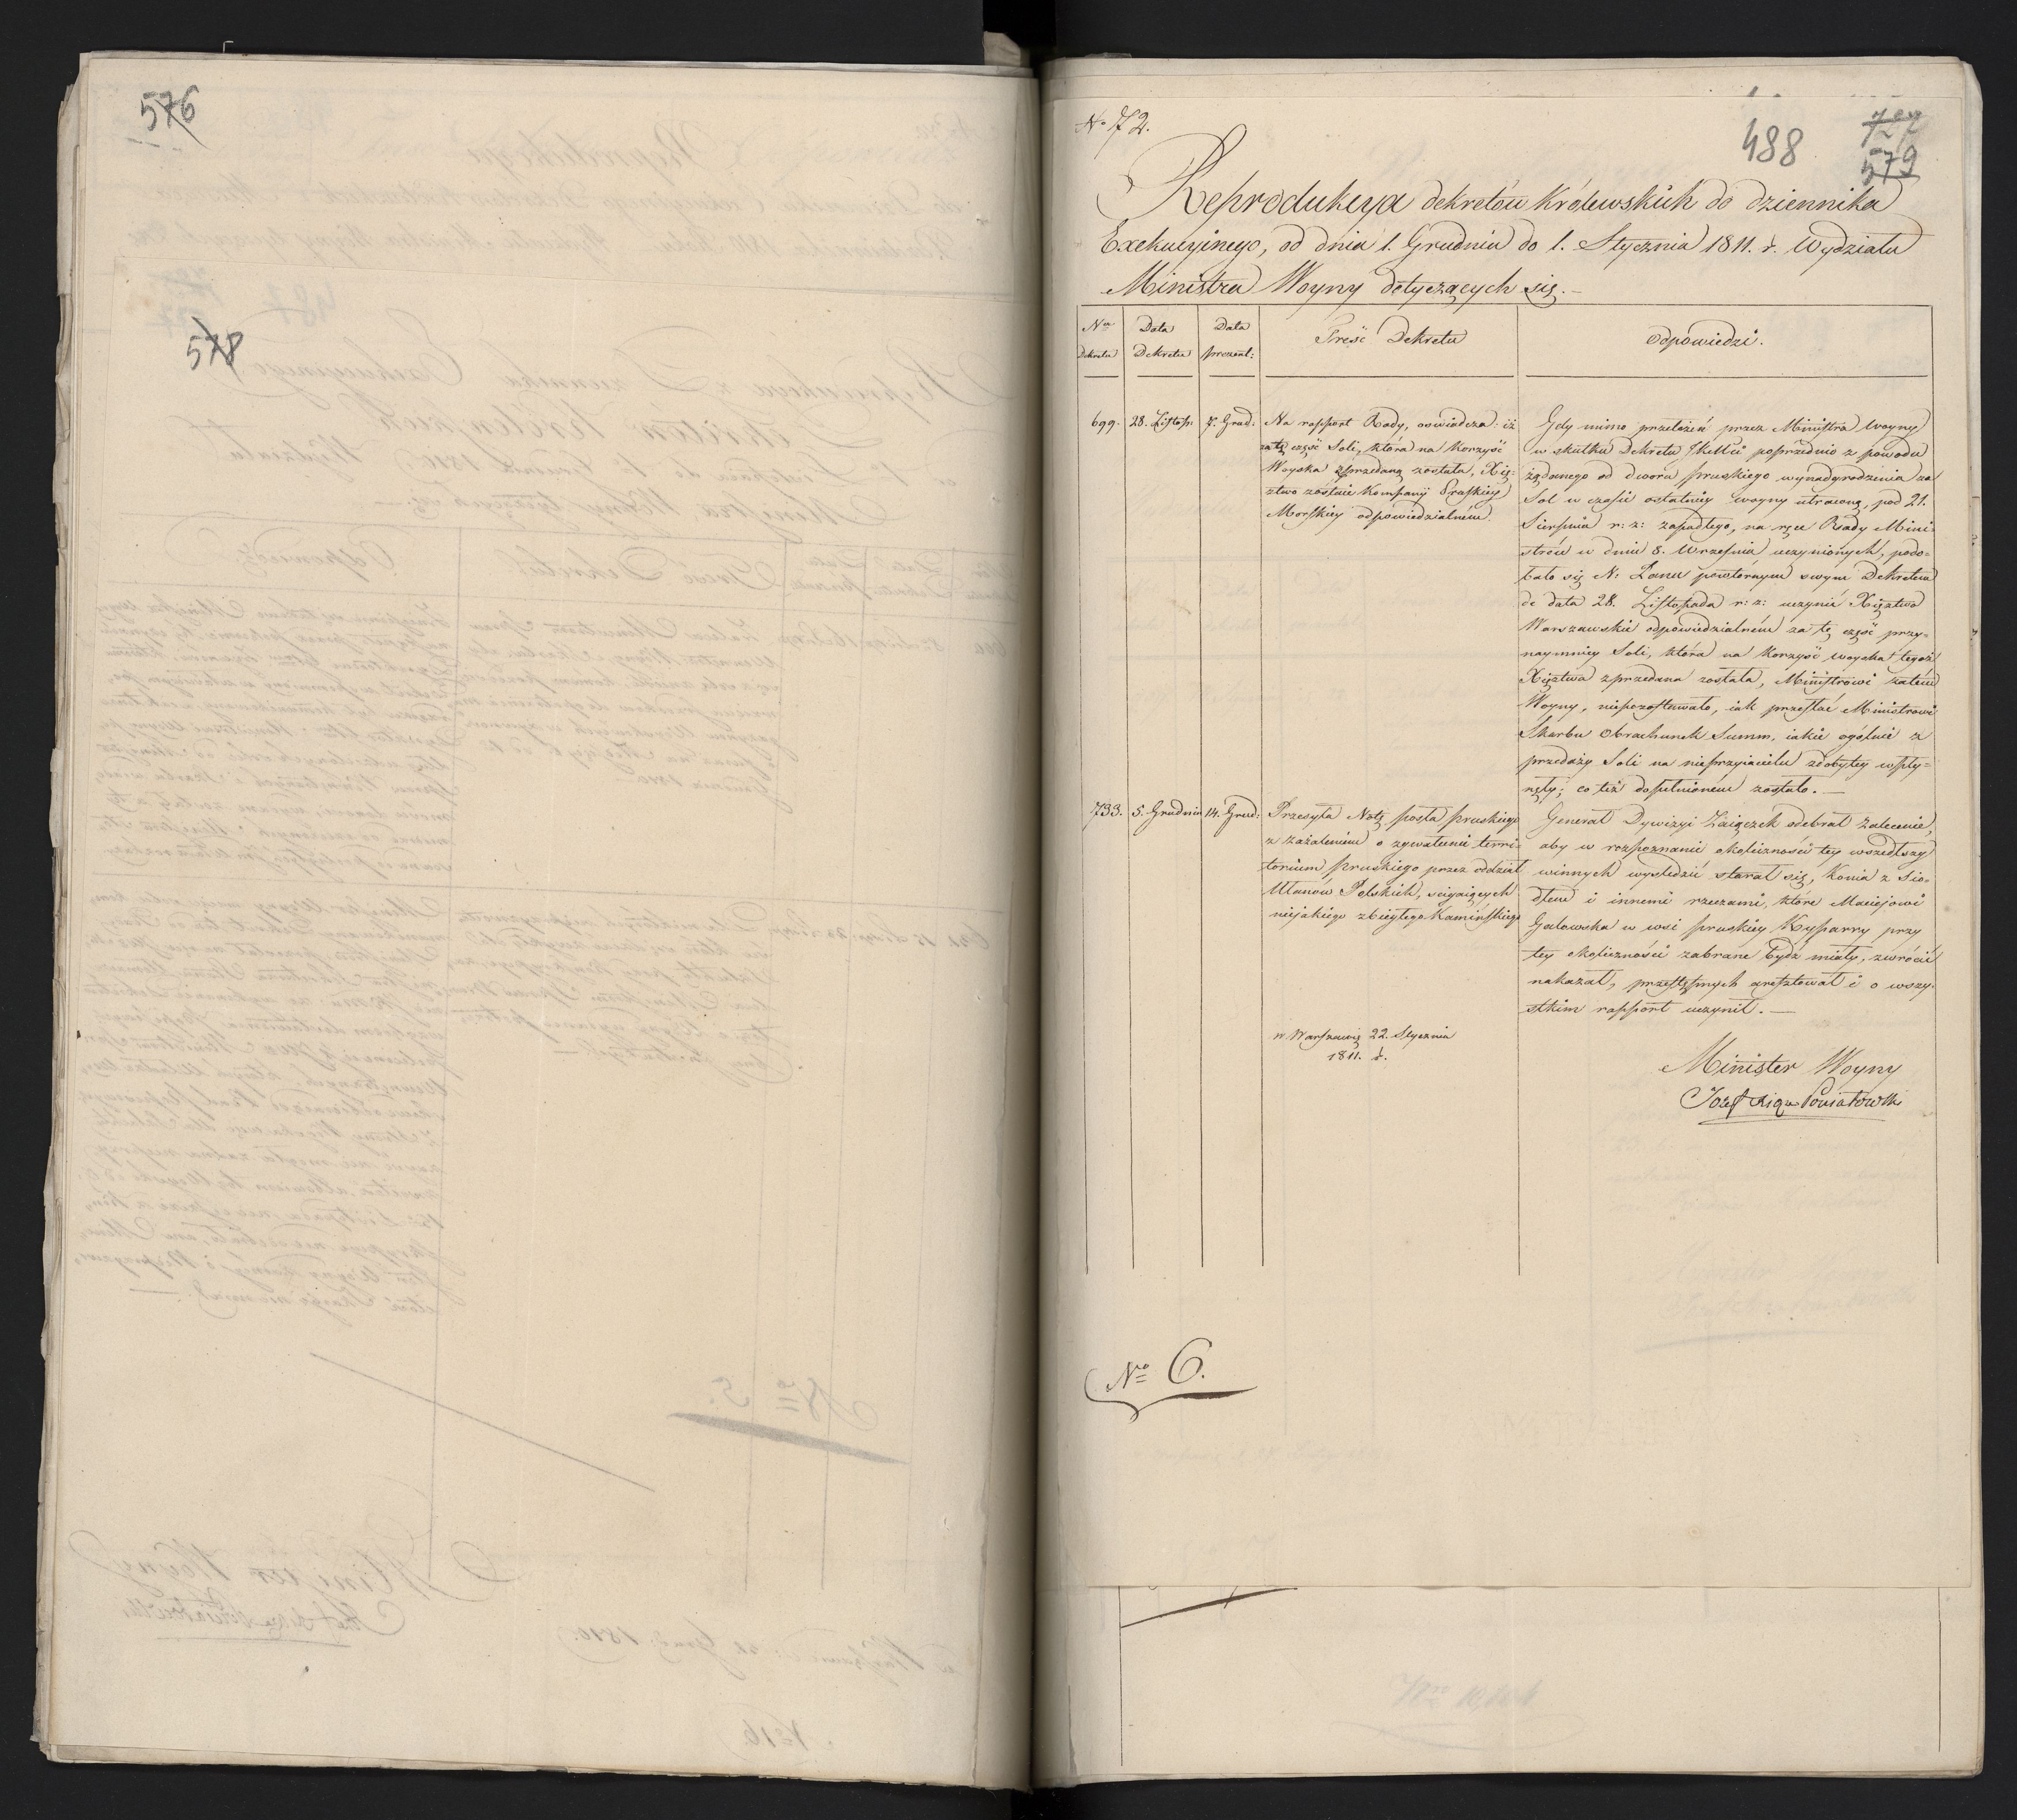 576
578
No 72.
488
727
579
Reprodukcya dekretów Królewskich do dziennika
Exekucyinego, od dnia 1. Grudnia do 1. Stycznia 1811. r. Wydziału
Ministra Woyny dotyczących się.
Nro Dekretu
Data Dekretu
Data prezent:
Treść Dekretu
Odpowiedzi.
699. 28. Listop. 7. Grud:
Na rapport Rady, oswiadcza: iż
za tę część Soli, która na korzyść
Woyska zprzedaną została, Xię-
ztwo zostaie Kompanij Pruskiey
Morskiey odpowiedzialném.
Gdy mimo przełożeń przez Ministra Woyny
w skutku Dekretu JKMci poprzednio z powodu
żądanego od dworu pruskiego wynadgrodzenia za
Sol w czasie ostatniey woyny utraconą, pod 21.
Sierpnia r: z: zapadłego, na ręce Rady Mini-
strów w dniu 8. Września uczynionych, podo-
bało się N: Panu powtórnym swym Dekretem
de data 28. Listopada r: z: uczynić Xięztwo
Warszawskie odpowiedzialném za tę część przy-
naymniey Soli, która na korzyść woyska tegoż
Xięztwa zprzedana została, Ministrowi zatém
Woyny, niepozostawało, iak przesłać Ministrowi
Skarbu Obrachunek Summ, iakie ogólnie z
przedaży Soli na nieprzyiacielu zdobytey wpły-
nęły; co też dopełnionem zostało.
733. 5. Grudnia 14. Grud:
Przesyła Notę posła pruskiego
z zażaleniem o zgwałcenie terri-
torium pruskiego przez oddział
Ułanów Polskich, scigaiących
niejakiego zbiegłego Kamińskiego
Generał Dywizyi Zaiączek odebrał zalecenie,
aby w rozpoznanie okoliczności tey wszedłszy
winnych wyśledzić starał się, Konia z Sio-
dłem i innemi rzeczami, które Maciejowi
Galowska w wsi pruskiey Kyparry przy
tey okoliczności zabrane bydź miały, zwrócić
nakazał, przestępnych aresztował i o wszy-
stkim rapport uczynił.
w Warszawie 22. Stycznia
1811. r.
Minister Woyny
Józef Xiąże Poniatowski
No 6.